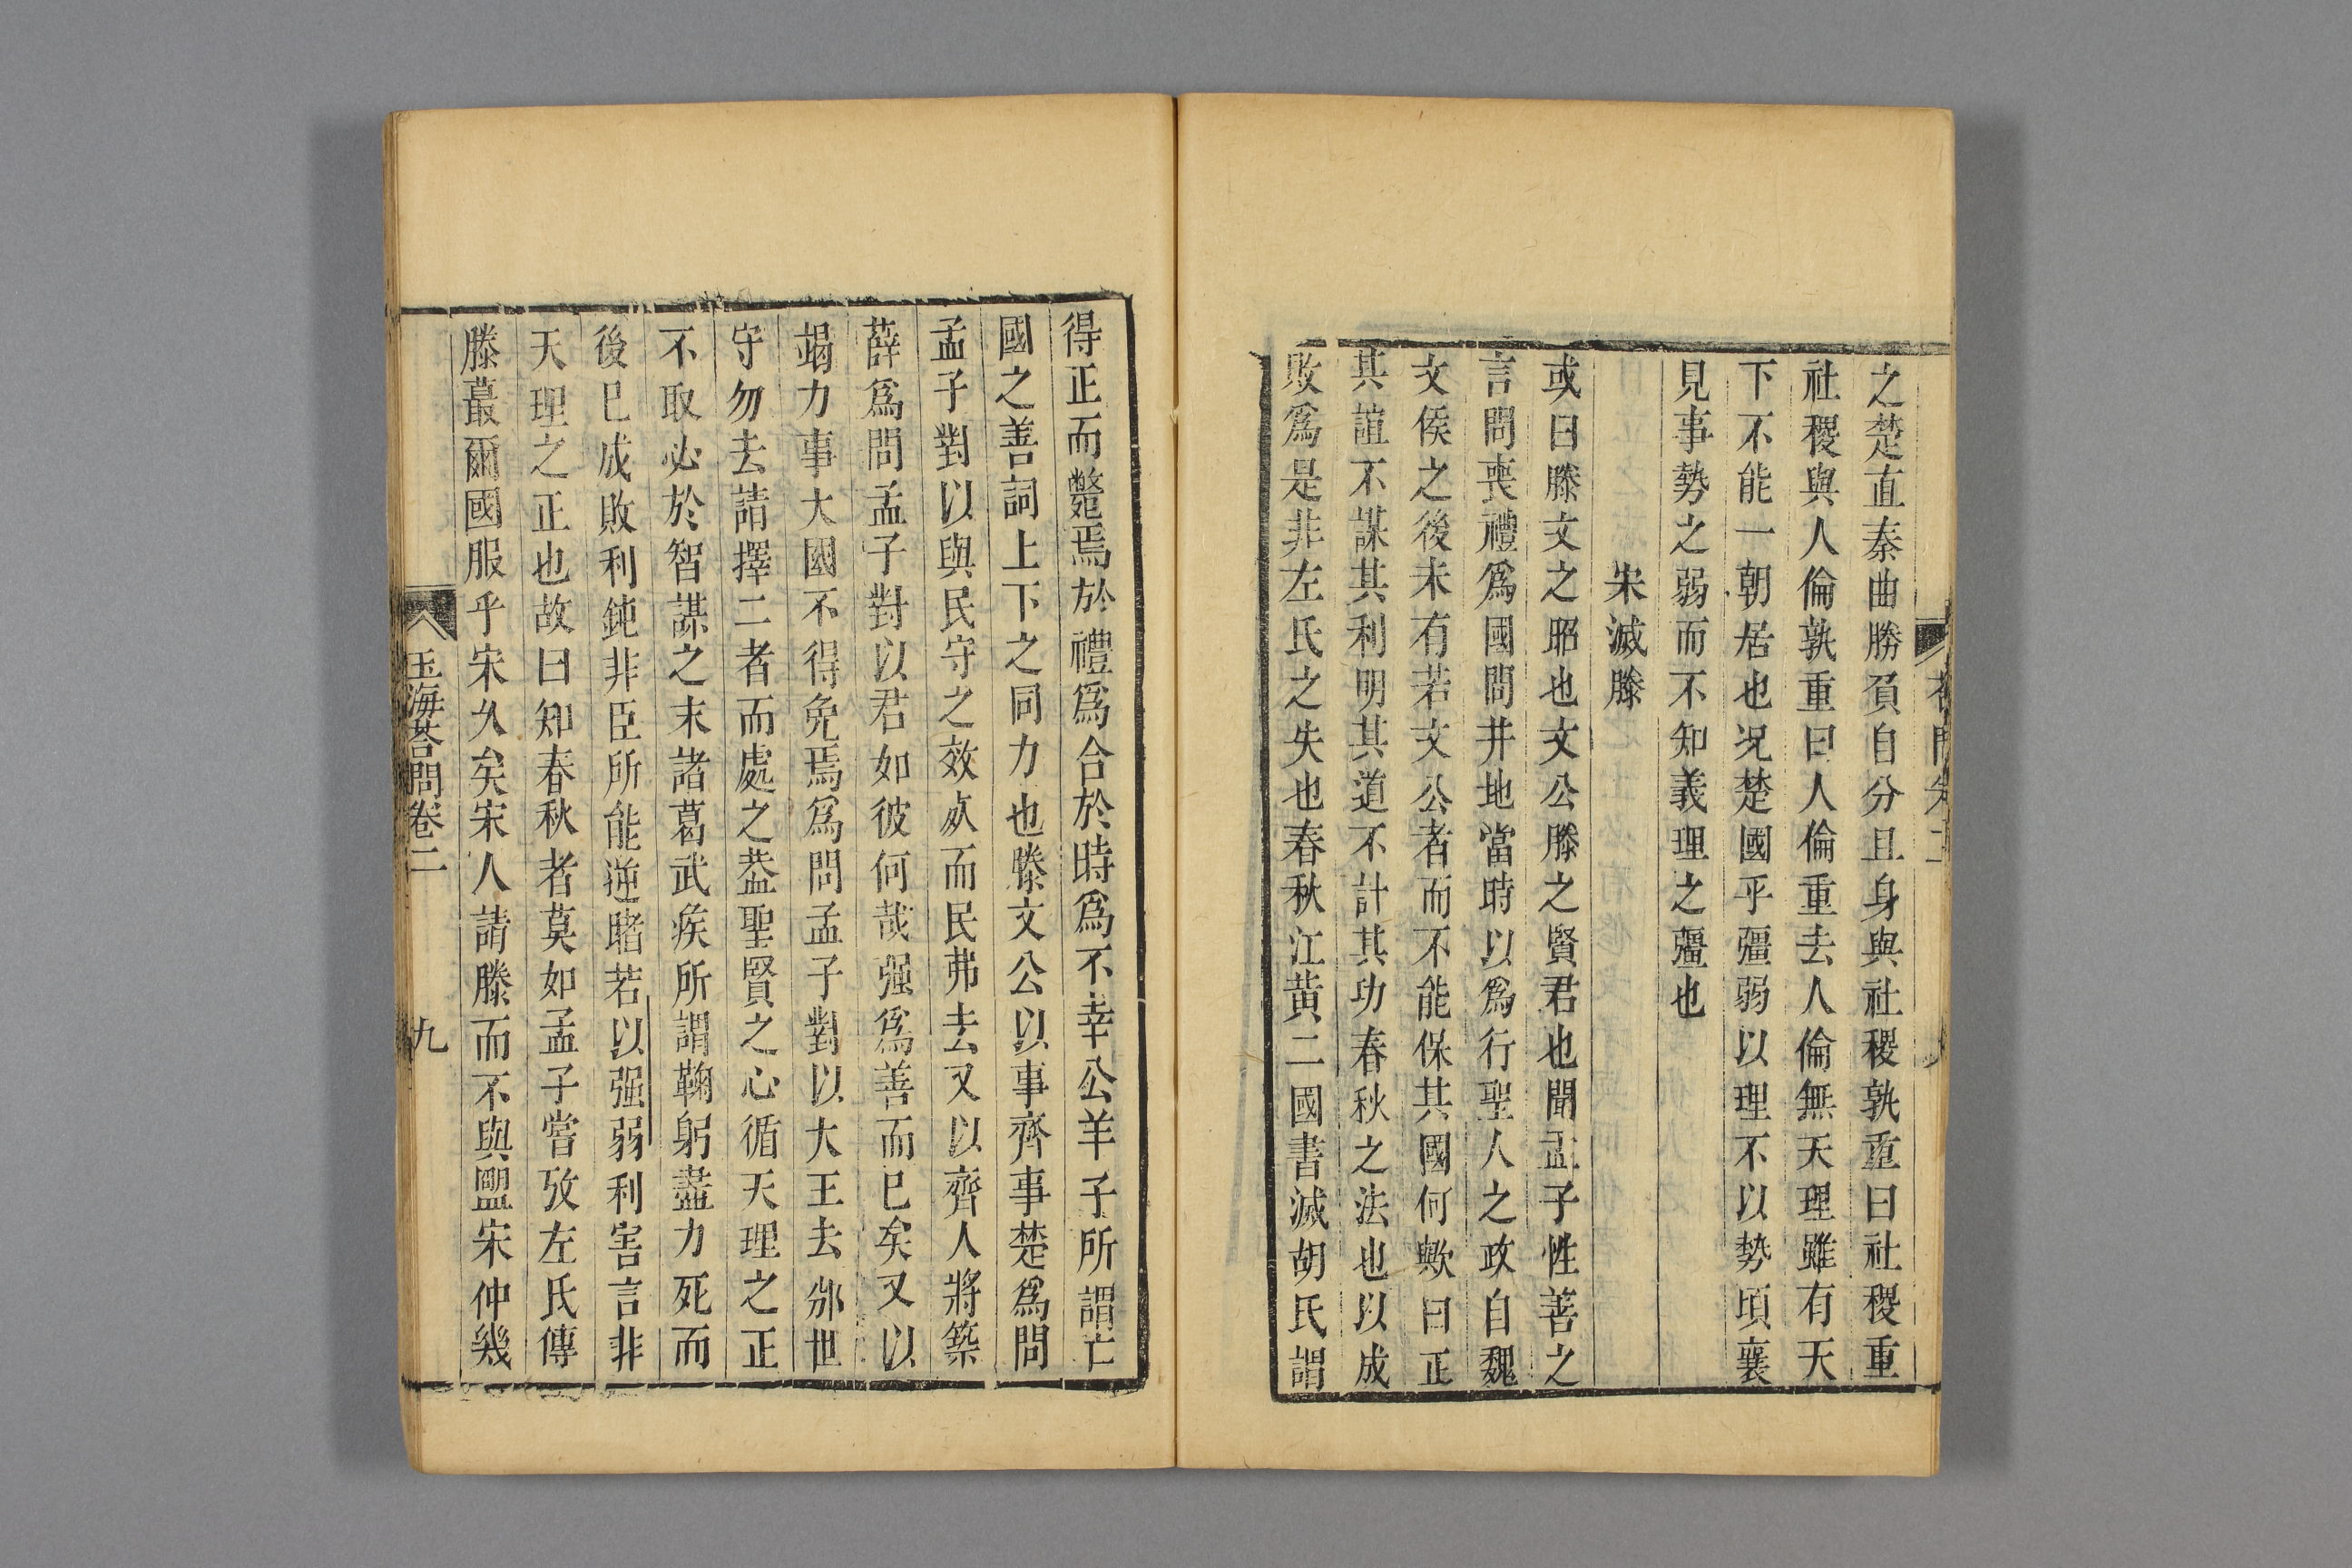 之楚直秦曲勝負自分且身與社稷孰重曰社稷重
社稷與人倫孰重曰人倫重去人倫無天理雖有天
下不能一朝居也况楚國乎彊弱以理不以勢頃襄
見事勢之弱而不知義理之彊也
宋滅滕
或曰滕文之昭也文公滕之賢君也聞孟子性善之
言問喪禮爲國問井地當時以爲行聖人之政自魏
文侯之後未有若文公者而不能保其國何歟曰正
其誼不謀其利明其道不計其功春秋之法也以成
敗爲是非左氏之失也春秋江黄二國書滅胡氏謂
得正而斃焉於禮爲合於時爲不幸公羊子所謂亡
國之善詞上下之同力也滕文公以事齊事楚爲問
孟子對以與民守之效死而民弗去又以齊人將築
薛爲問孟子對以君如彼何哉强爲善而已矣又以
竭力事大國不得免焉爲問孟子對以大王去邠世
守勿去請擇二者而處之葢聖賢之心循天理之正
不取必於智謀之末諸葛武侯所謂鞠躬盡力死而
後已成敗利鈍非臣所能逆睹若以强弱利害言非
天理之正也故曰知春秋者莫如孟子嘗攷左氏傳
滕蕞爾國服乎宋久矣宋人請滕而不與盟宋仲幾
玉海荅問卷二
九